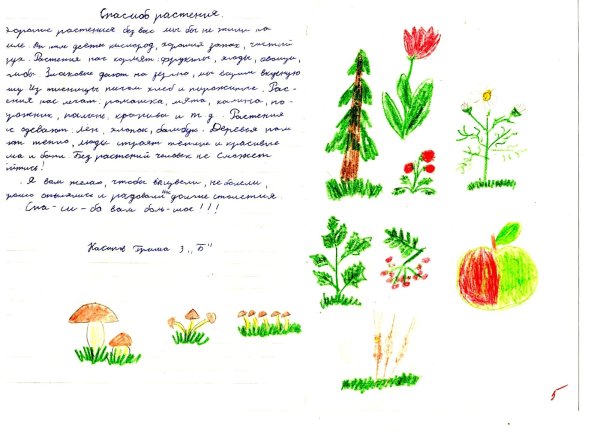 Спасибо растения.
хорошие растения без вас мы бы не жили на
мле. Вы нам даёте кислород, хороший запах, чистый
дух. Растения нас кормят: фрукты, ягоды, овощи,
грибы. Злаковые дают на зерно, мы варим вкусную
шу. Из пшеницы печём хлеб и пирожные. Рас-
ения нас лечат: ромашка, мята, калина, по-
дожник, полынь, крапива и т д. Растения
с одевают: лён, хлопок, бамбук. Деревья нам
ют тепло, люди строят жильё и красивые
ма и бани. Без растений человек не сможет
йтись!
Я вам желаю, чтобы вы цвели, не болели,
рошо опылялись и радовали нас долгие столетия
Спа-си-бо вам боль-шое!!!
3 „Б"
5